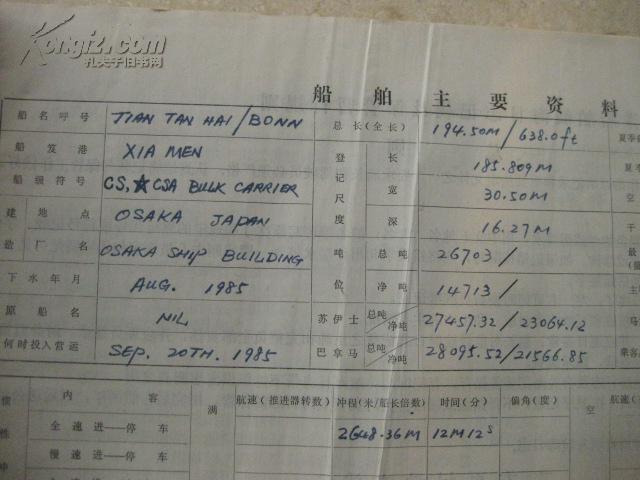 Kongfz.com
孔夫子旧书网
船舶主要资料
船名呼号 TIAN TAN HAI/BONN 总长(全长) 194.50M/638.0ft
船笈港 XIA MEN 登记尺度 长 185.809M
船级符号 CS,★CSA BULK CARRIER 宽 30.50M 空
建造 地点 OSAKA JAPAN 深 16.27M 干
厂名 OSAKA SHIP BUILDING 吨位 总吨 26703/
下水年月 AUG. 1985 净吨 14713/
原船名 NIL 苏伊士 总吨/净吨 27457.32/23064.12
何时投入营运 SEP. 20TH. 1985 巴拿马 总吨/净吨 28095.52/21566.85
内容 满 航速(推进器转数) 冲程(米/船长倍数) 时间(分) 偏角(度) 空
全速进——停车 2648.36M 12M12S
慢速进——停车